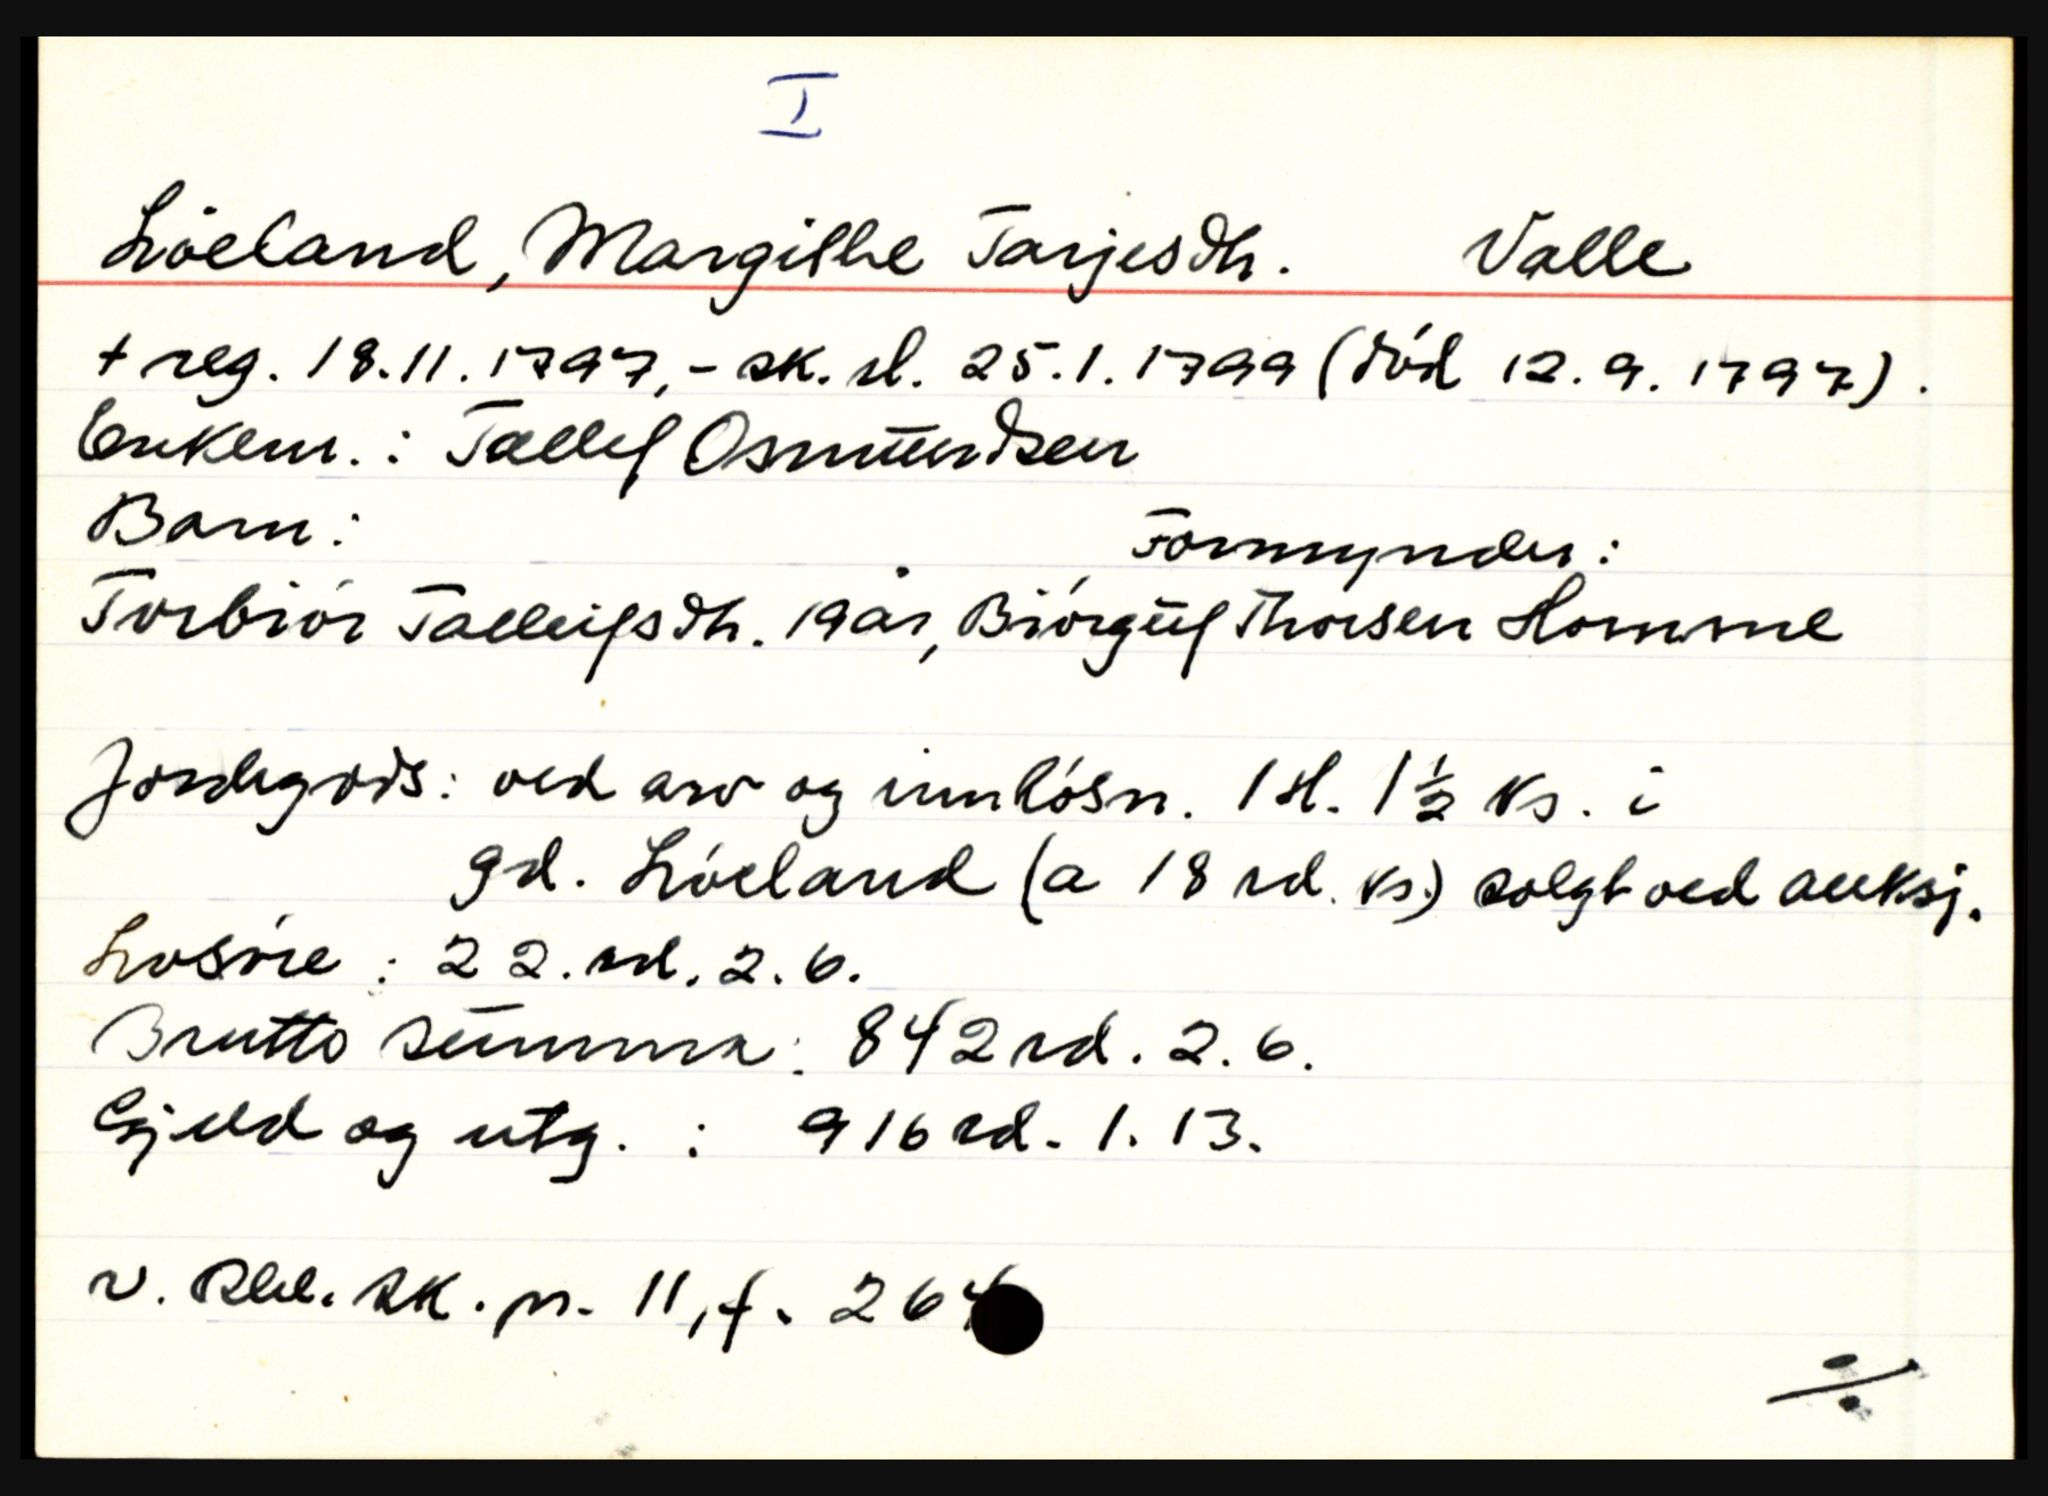 I
Løeland, Margithe Tarjesdtr. Valle
+ reg. 18.11.1797,- sk. sl. 25.1.1799 (død 12.9.1797).
Enkem.: Tallef Osmundsen
Barn: Formynder:
Torbiør Talleifsdtr. 19 år, Biørgulf Thorsen Homme
Jordegods: ved arv og innløsn. 1 H. 1½ ks. i
gd. Løeland (a 18 rd. ks.) solgt ved auksj.
Losøre : 22. rd. 2. 6.
Brutto summa: 842 rd. 2. 6.
Gjeld og utg. : 916 rd. 1. 13.
v. Rbl. sk. pr. 11, f. 264